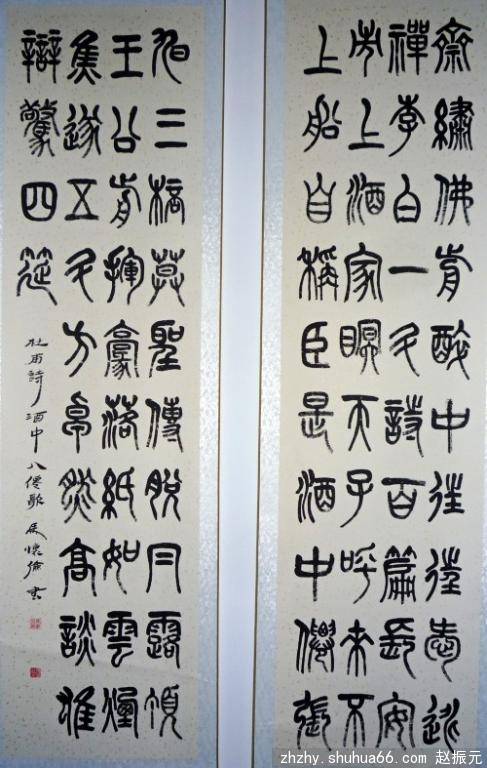 齋繡佛前醉中往往愛逃
禪李白一斗詩百篇長安
市上酒家眠天子呼來不
上船自稱臣是酒中僊張
旭三桮草聖傳脫冃露頂
王公前揮豪落紙如雲煙
焦遂五斗方卓然高談雄
辯驚四筵
杜甫詩酒中八僊歌 懷倫書
zhzhy.shuhua66.com 赵振元